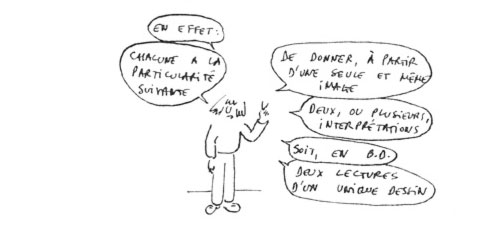 EN EFFET:
CHACUNE A LA
PARTICULARITÉ
SUIVANTE
DE DONNER, À PARTIR
D'UNE SEULE ET MÊME
IMAGE
DEUX, OU PLUSIEURS,
INTERPRÉTATIONS
SOIT, EN B.D.
DEUX LECTURES
D'UN UNIQUE DESSIN